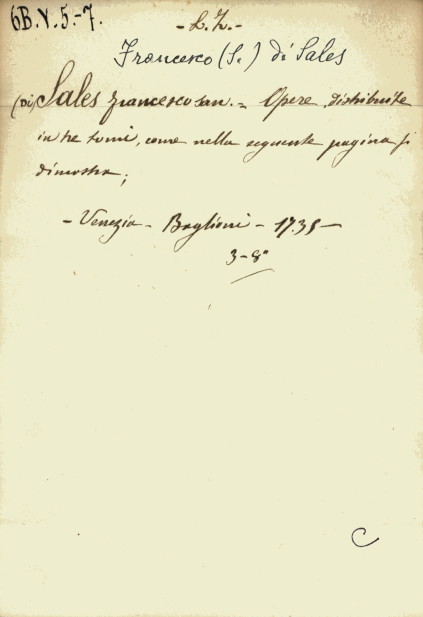 6B.V.5.-7.
- L. Z. -
Francesco (S.) di Sales
(Di) Sales Francesco san. = Opere distribuite
in tre tomi, come nella seguente pagina si
dimostra;
- Venezia - Baglioni - 1735 -
3 - 8°
C